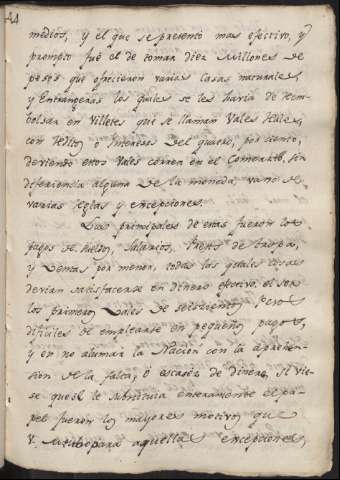 medios, y el que se presentó mas efectivo, y
prompto fué el de tomar diez Millones de
pesos que ofrecieron varias casas naturales,
y Extrangeras los quales se les havia de reem-
bolsar en Villetes que se llaman Vales Reales,
con redito, o Interes del quatro, por ciento,
deviendo estos Vales correr en el Comercio, sin
diferiencia alguna de la moneda, vaxo de
varias reglas y excepciones.
Las principales de estas fueron los
pagos de sueldos, salarios, Prest de tropa,
y Ventas por menor, todas las quales cosas
devian satisfacerse en dinero efectivo, el ser
los primeros Vales de seiscientos Pesos
dificiles de emplearse en pequeños pagos,
y en no alarmar la Nacion con la aprehen-
sion de la falta, o escasez de dinero, si vie-
se que se le substituia enteramente el pa-
pel fueron los mayores motivos que
V. para aquellas excepciones,